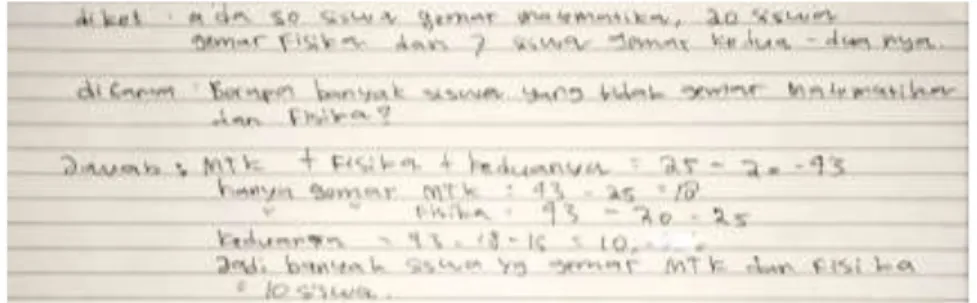 diket : ada 50 siswa gemar matematika, 20 siswa
gemar Fisika dan 7 siswa gemar kedua-duanya.
ditanya : Berapa banyak siswa yang tidak gemar Matematika
dan Fisika?
Jawab : MTK + Fisika + keduanya = 25 - 20 - 43
hanya gemar MTK : 43 - 25 = 18
" " Fisika : 43 - 20 - 25
keduanya = 43 - 18 - 15 = 10
Jadi banyak siswa yg gemar MTK dan Fisika
= 10 siswa.